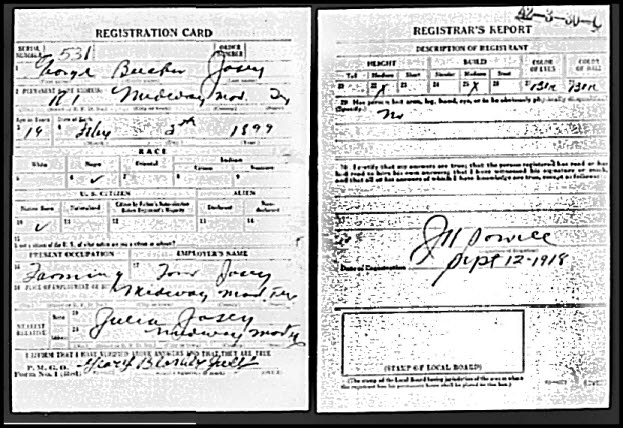 REGISTRATION CARD
SERIAL NUMBER 531 ORDER NUMBER
George Beecher Josey
2 PERMANENT HOME ADDRESS:
R 1 Midway Mad. Tex
Age in Years Date of Birth
19 July 1899
RACE
White Negro Oriental Indian
Citizen
5 6 ✓ 7 8 9
U. S. CITIZEN ALIEN
Native Born Naturalized Citizen by Father's Naturalization Before Registrant's Majority Declarant Non-declarant
10 ✓ 11 12 13 14
15
If not a citizen of the U. S., of what nation are you a citizen or subject?
PRESENT OCCUPATION EMPLOYER'S NAME
16 Farming 17 Tom Josey
18 PLACE OF EMPLOYMENT OR
Midway Mad Tex
NEAREST RELATIVE
Name 19 Julia Josey
Address 20 Midway Mad Tex
I AFFIRM THAT I HAVE VERIFIED ABOVE ANSWERS AND THAT THEY ARE TRUE
P. M. G. O.
Form No. 1 (Red)
42-3-30-C
REGISTRAR'S REPORT
DESCRIPTION OF REGISTRANT
HEIGHT BUILD COLOR OF EYES COLOR OF HAIR
Tall Medium Short Slender Medium Stout
21 22 X 23 24 25 X 26 27 28
29 Has person lost arm, leg, hand, eye, or is he obviously physically disqualified?
(Specify.) No
30 I certify that my answers are true; that the person registered has read or has
had read to him his own answers; that I have witnessed his signature or mark,
and that all of his answers of which I have knowledge are true, except as follows:
Powell
Date of Registration Sept 12-1918
(STAMP OF LOCAL BOARD)
(The stamp of the Local Board having jurisdiction of the area in which
the registrant has his permanent home shall be placed in this box.)